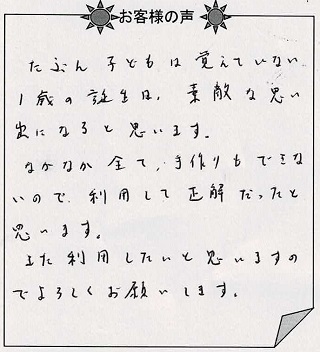 お客様の声
たぶん子どもは覚えていない
1歳の誕生日、素敵な思い
出になると思います。
なかなか全て、手作りもできな
いので、利用して正解だったと
思います。
また利用したいと思いますの
でよろしくお願いします。